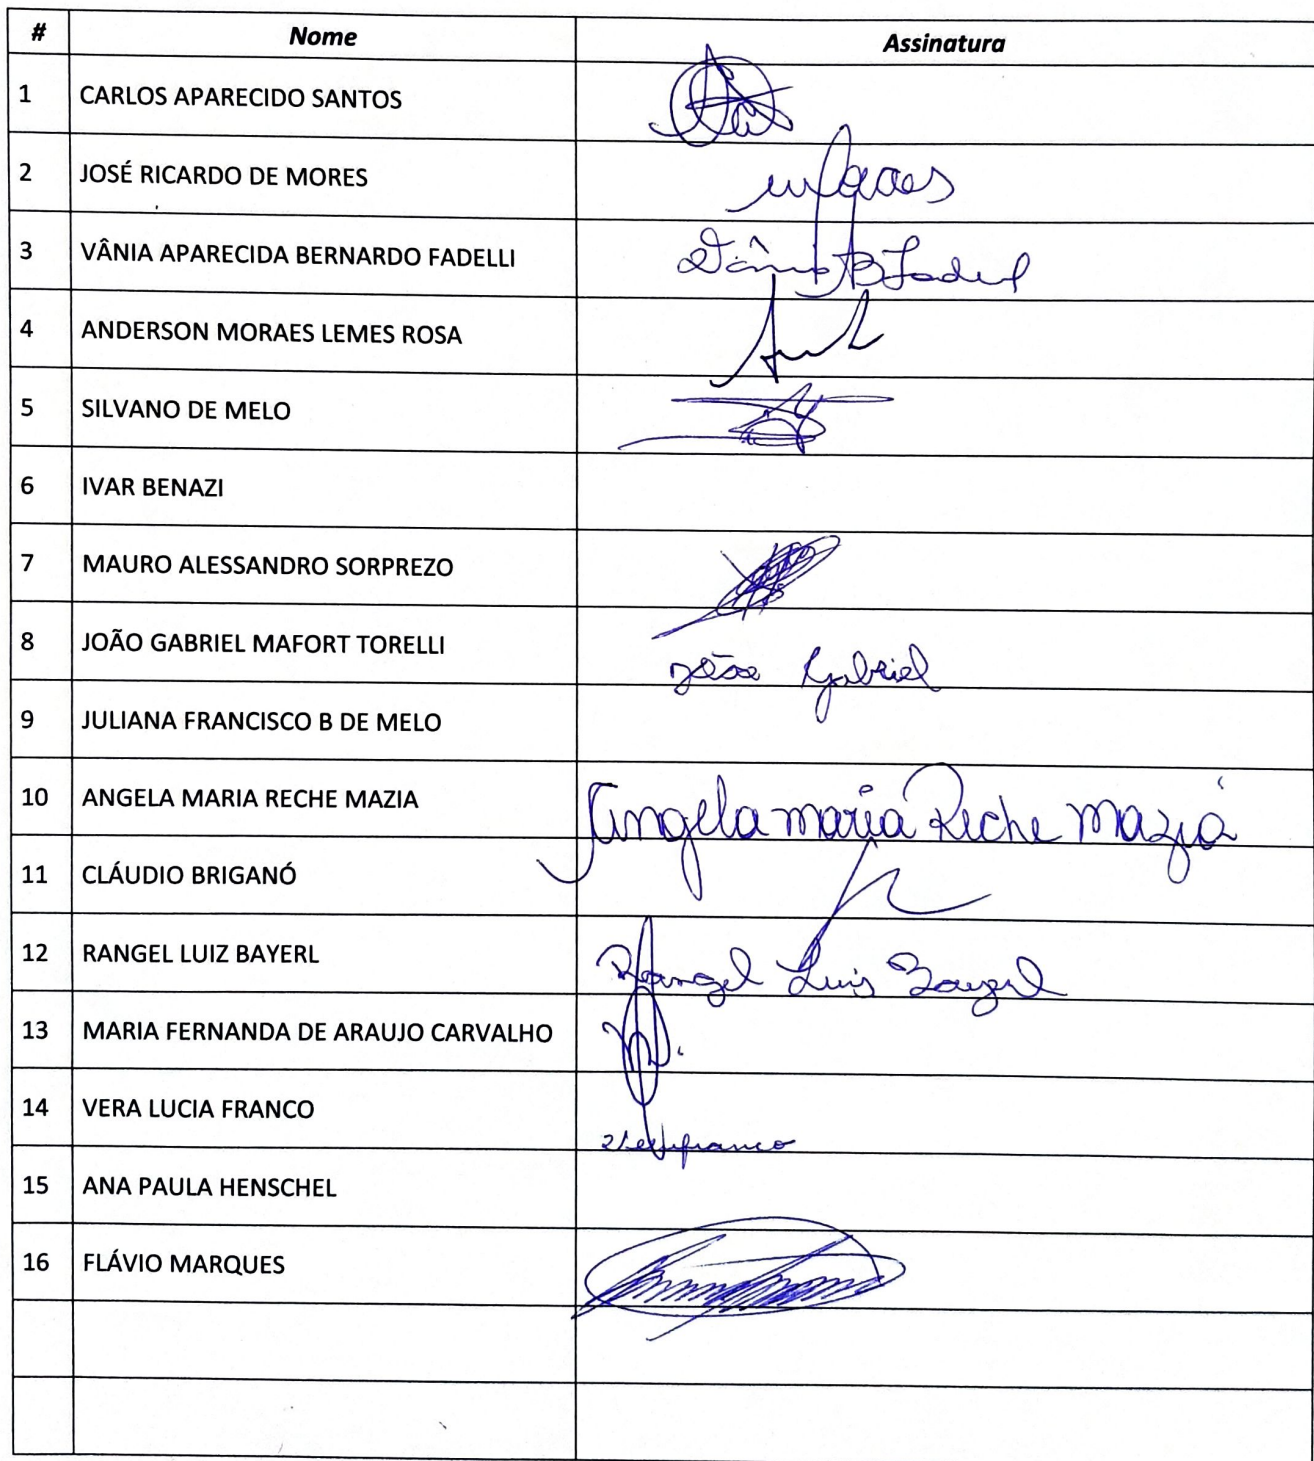 # Nome Assinatura
1 CARLOS APARECIDO SANTOS
2 JOSÉ RICARDO DE MORES
3 VÂNIA APARECIDA BERNARDO FADELLI
4 ANDERSON MORAES LEMES ROSA
5 SILVANO DE MELO
6 IVAR BENAZI
7 MAURO ALESSANDRO SORPREZO
8 JOÃO GABRIEL MAFORT TORELLI João Gabriel
9 JULIANA FRANCISCO B DE MELO
10 ANGELA MARIA RECHE MAZIA Angela maria Reche Mazia
11 CLÁUDIO BRIGANÓ
12 RANGEL LUIZ BAYERL Rangel Luis Bayerl
13 MARIA FERNANDA DE ARAUJO CARVALHO
14 VERA LUCIA FRANCO
15 ANA PAULA HENSCHEL
16 FLÁVIO MARQUES